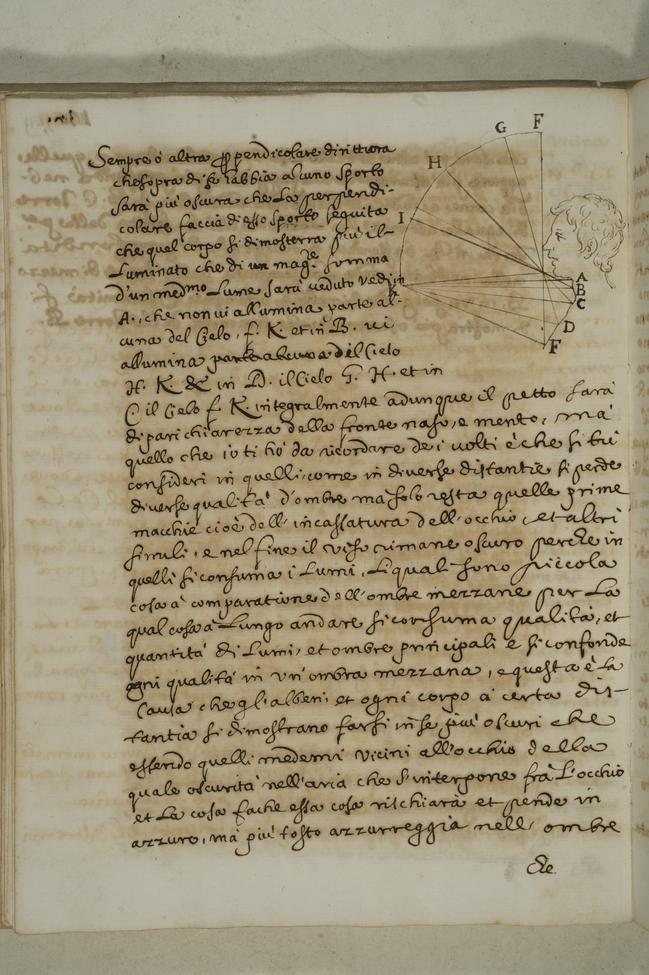 G F
H
I
A
B
C
D
F
Sempre ó altra perpendicolare dirittura
che sopra di se habbia alcuno sporto
sarà più oscura che La perpendi-
colare faccia di esso sporto seguita
che quel corpo si dimosterra più il-
Luminato che di un mag.re somma
d'un med.mo Lume sarà veduto vedi in
A., che non vi allumina parte al-
cuna del Cielo, f. K et in B. vi
allumina parte alcuna del Cielo
H. K. & in D. il Cielo G. H. et in
C il Cielo f. K integralmente adunque il petto sarà
di pari chiarezza della fronte naso, e mento, mà
quello che io ti hó da ricordare de i volti è che si tu
consideri in quelli come in diverse distantie si perde
diverse qualità d'ombre ma solo resta quelle prime
macchie cioè dell' incassatura dell'occhio, et altri
simili, e nel fine il viso rimane oscuro perche in
quelli si consuma i Lumi, Li quali sono piccola
cosa à comparatione dell'ombre mezzane per La
qual cosa à Lungo andare si consuma qualità, et
quantità di Lumi, et ombre principali e si confonde
ogni qualità in un'ombra mezzana, e questa è La
Causa che gl'alberi, et ogni corpo à certa dis-
tantia si dimostrano farsi in se più oscuri che
essendo quelli medemi vicini all'occhio della
quale oscurità nell'aria che s'interpone frà L'occhio
et La cosa fa che essa cosa rischiarà et pende in
azzuro, mà più tosto azzurreggia nell' ombre
che